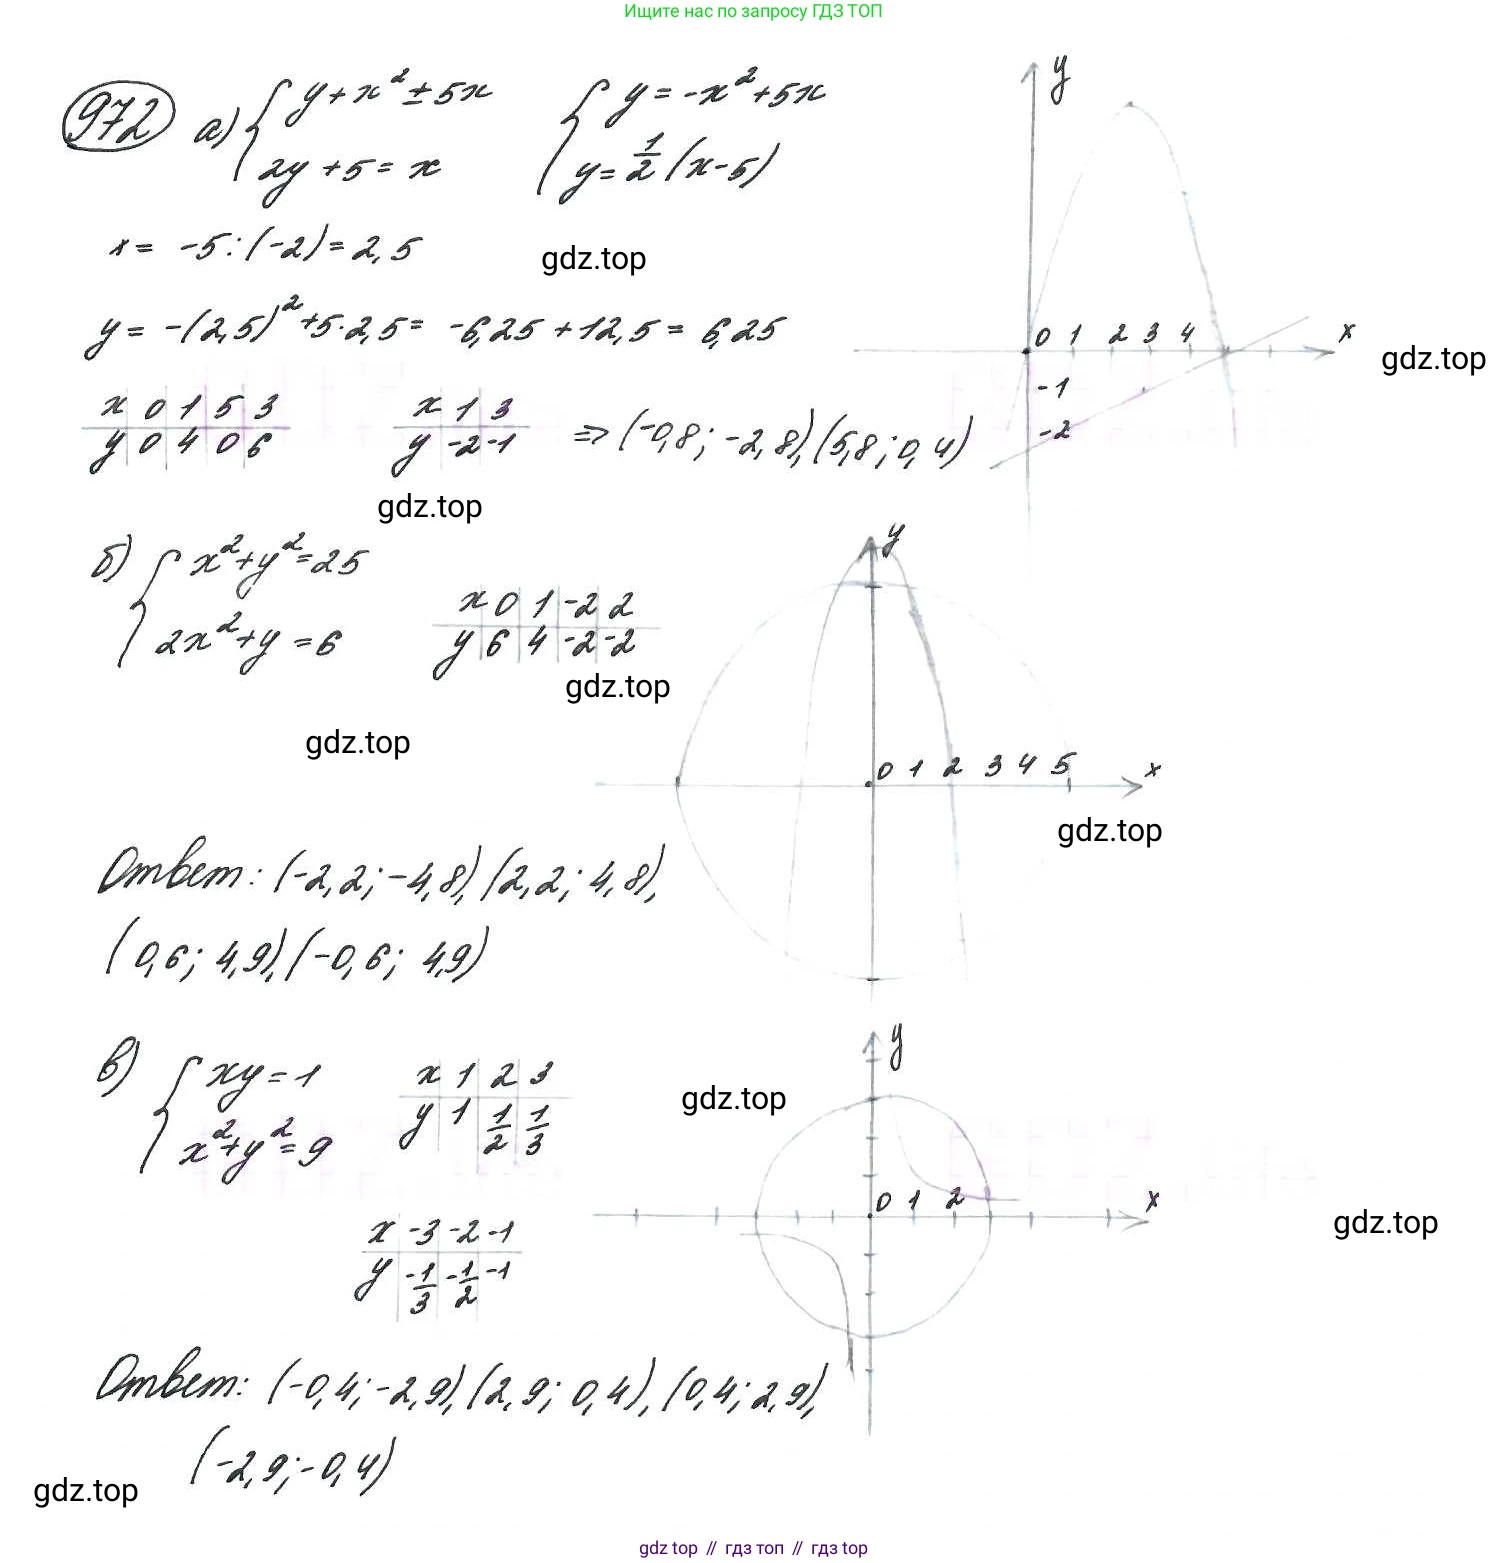 Ищите нас по запросу ГДЗ ТОП
972 а) { y + x² ± 5x { y = -x² + 5x
2y + 5 = x y = 1/2 (x - 5)
x = -5 : (-2) = 2,5
gdz.top
y = -(2,5)² + 5·2,5 = -6,25 + 12,5 = 6,25
x 0 1 5 3
y 0 4 0 6
x 1 3
y -2 -1
⇒ (-0,8; -2,8), (5,8; 0,4)
y
0 1 2 3 4 x
-1
-2
gdz.top
gdz.top
б) { x² + y² = 25
2x² + y = 6
x 0 1 -2 2
y 6 4 -2 -2
gdz.top
gdz.top
y
0 1 2 3 4 5 x
gdz.top
Ответ: (-2,2; -4,8), (2,2; 4,8),
(0,6; 4,9), (-0,6; 4,9)
в) { xy = 1
x² + y² = 9
x 1 2 3
y 1 1/2 1/3
gdz.top
x -3 -2 -1
y -1/3 -1/2 -1
y
0 1 2 x
gdz.top
Ответ: (-0,4; -2,9), (2,9; 0,4), (0,4; 2,9),
(-2,9; -0,4)
gdz.top
gdz.top // гдз топ // гдз.top